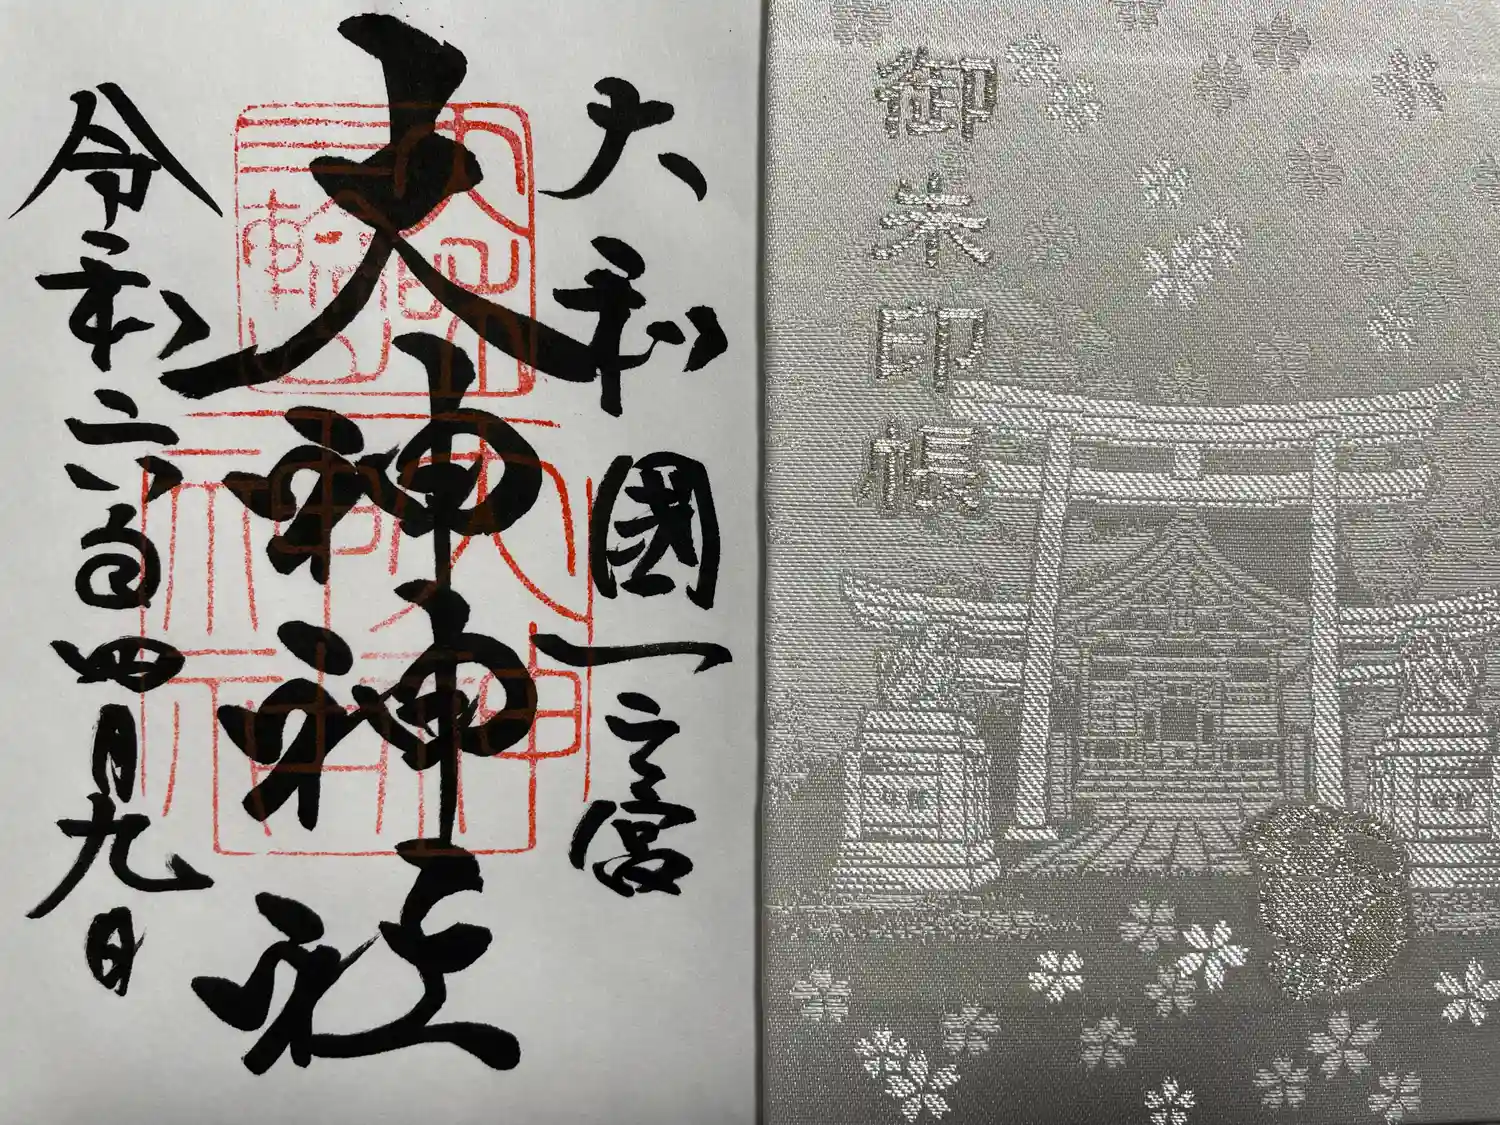 大和國一之宮
大神神社
令和六年四月九日
大神
神社
御朱印帳